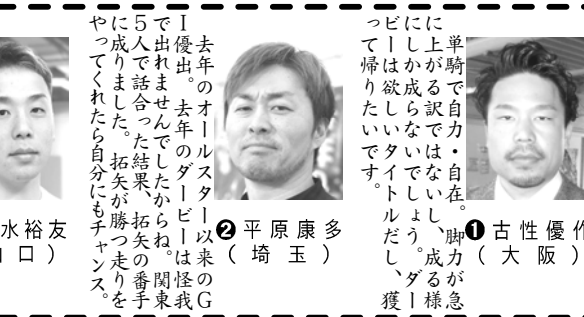 単騎で自力・自在。脚力が急
に上がる訳ではないし、成る様
にしか成らないでしょう。ダー
ビーは欲しいタイトルだし、獲
って帰りたいです。
❶古性優作
(大阪)
去年のオールスター以来のG
I優出。去年のダービーは怪我
で出れませんでしたからね。関東
5人で話合った結果、拓矢の番手
に成りました。拓矢が勝つ走りを
やってくれたら自分にもチャンス。
❷平原康多
(埼玉)
水裕友
口)